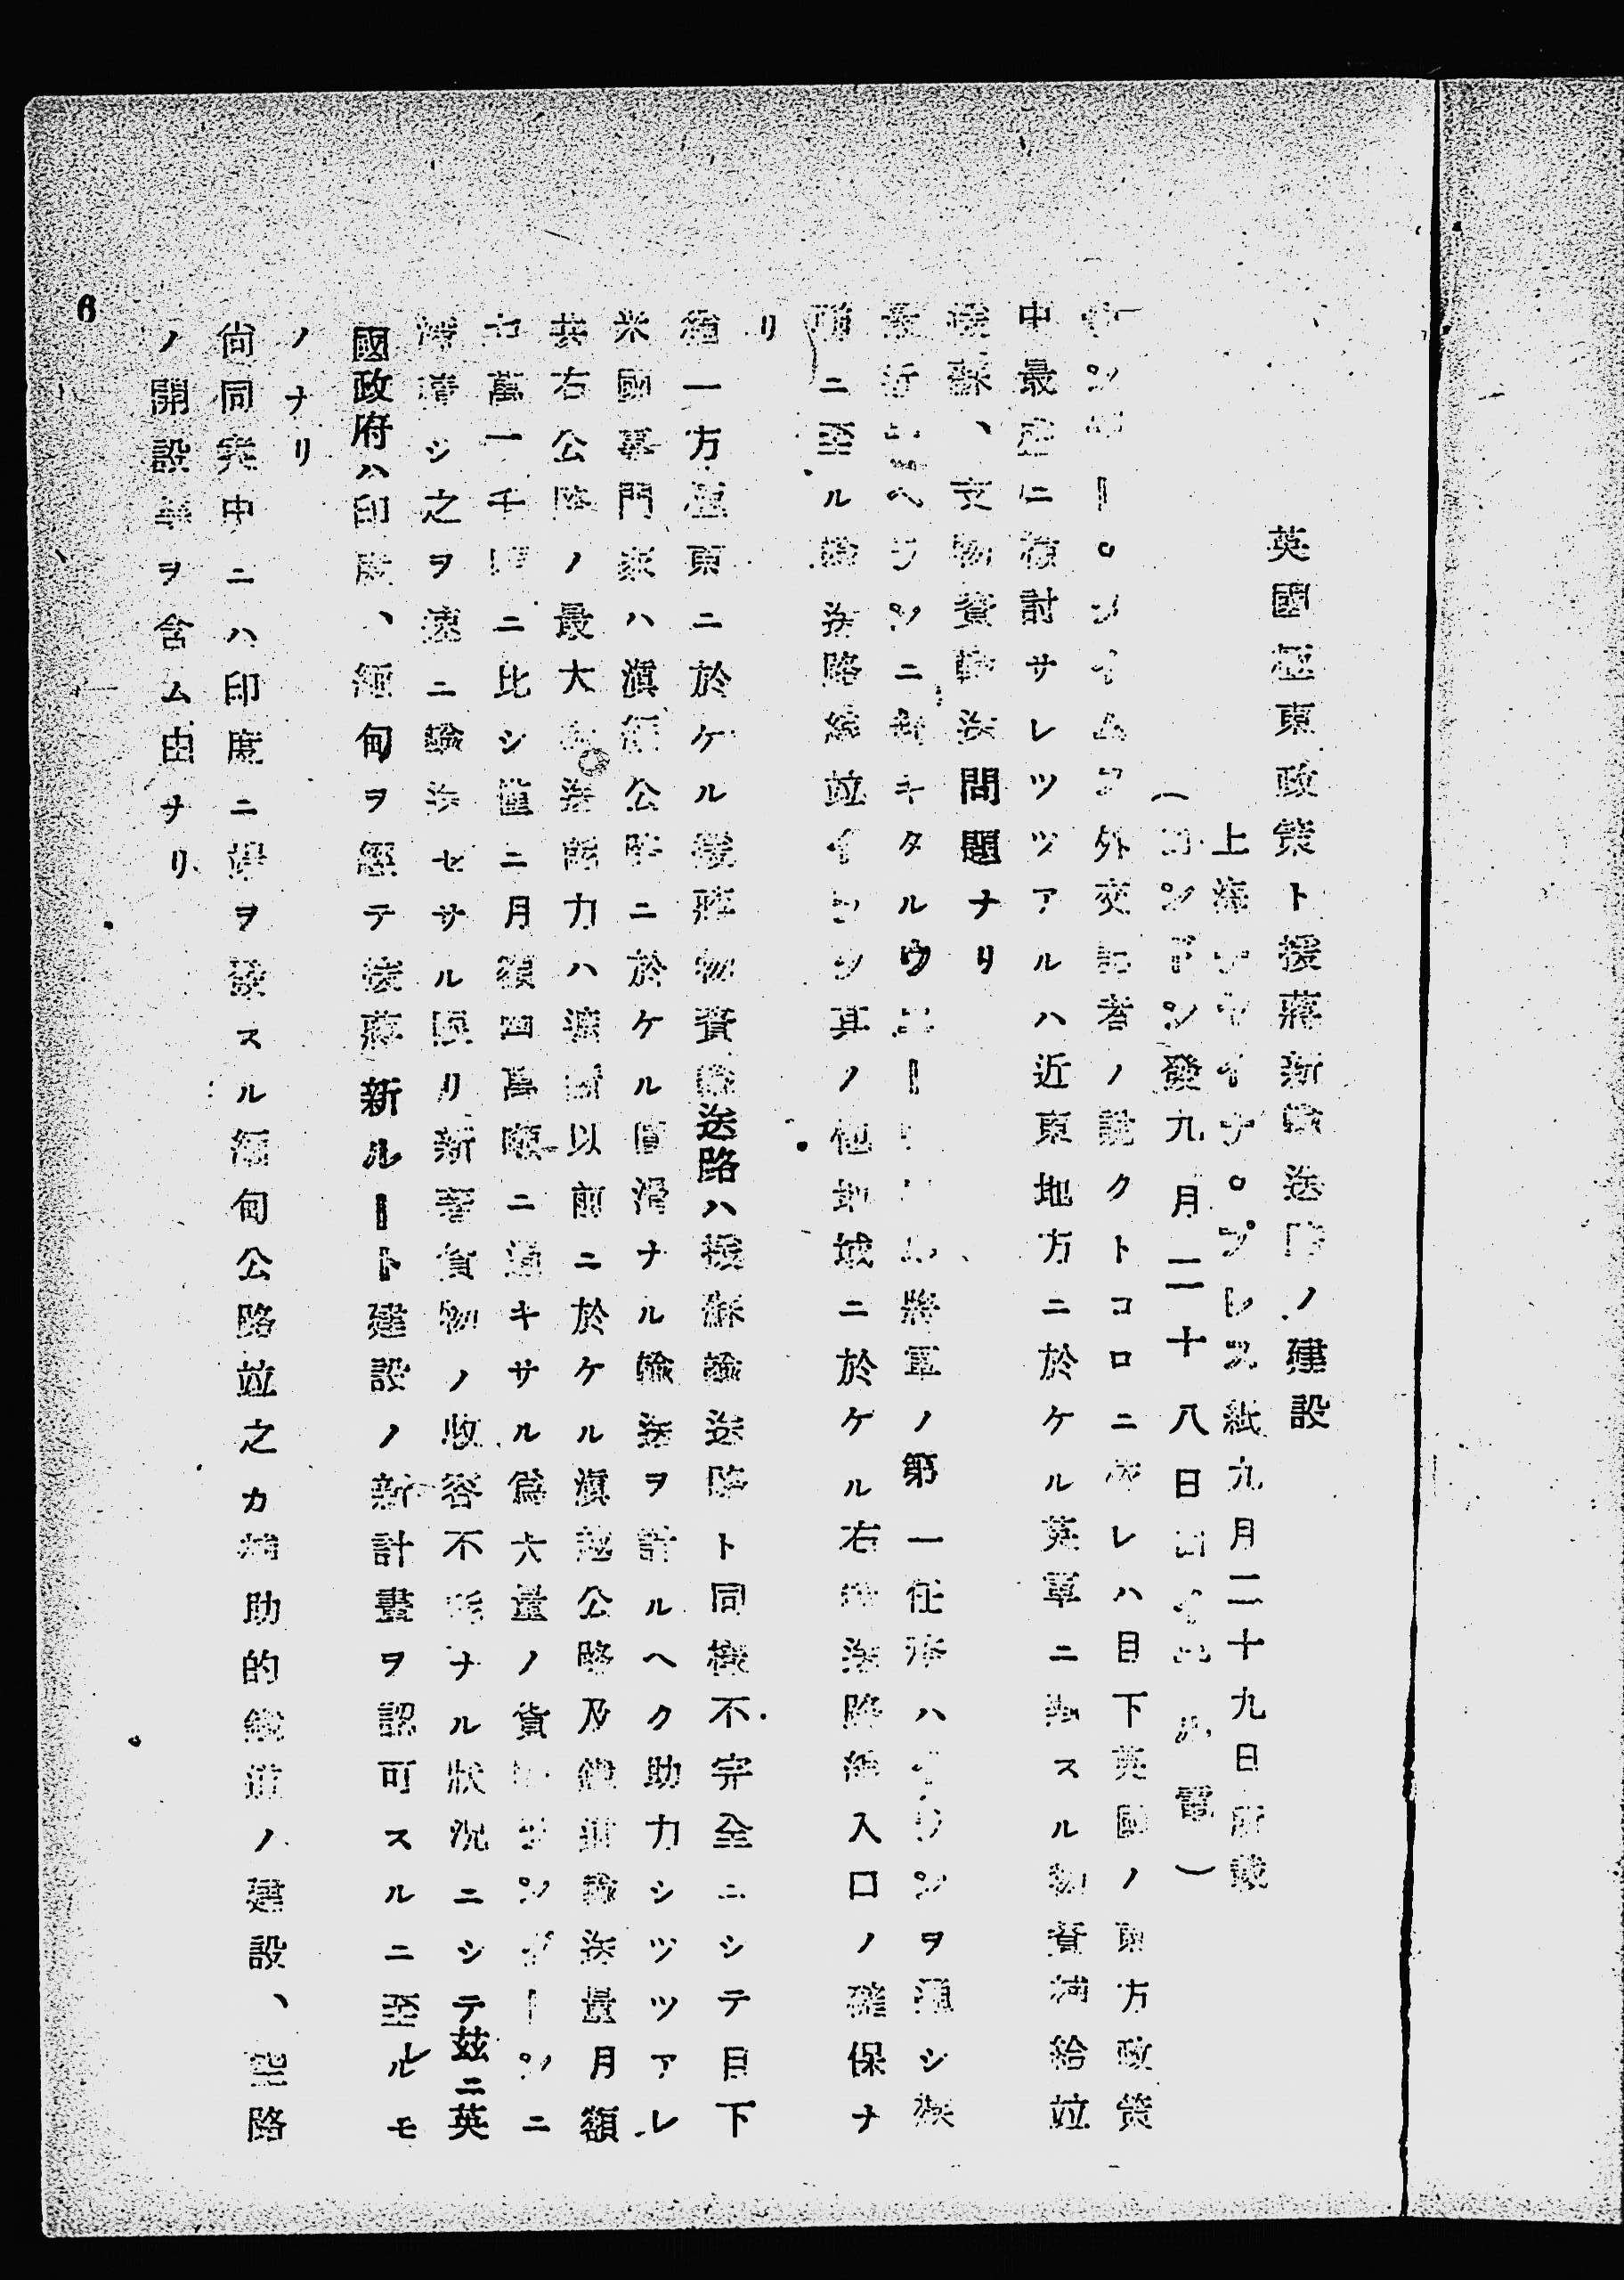 英國極東政策ト援蔣新輸送路ノ建設
上海チヤイナ。プレス紙九月二十九日所載
（ロンドン發九月二十八日ロイテル電）
ロンドン。タイムス外交記者ノ說クトコロニ依レハ目下英國ノ東方政策
中最近ニ檢討サレツツアルハ近東地方ニ於ケル英軍ニ對スル物資補給竝
援蘇、支物資輸送問題ナリ
最近テヘランニ赴キタルウエー將軍ノ第一任務ハイランヲ通シ
ニ至ル輸送路線竝イラン其ノ他地域ニ於ケル右輸送路線入口ノ確保ナ
リ
猶一方極東ニ於ケル援蔣物資輸送路ハ援蘇輸送路ト同樣不完全ニシテ目下
米國專門家ハ滇緬公路ニ於ケル圓滑ナル輸送ヲ計ルヘク助力シツツアレ
共右公路ノ最大輸送能力ハ以前ニ於ケル滇越公路及鐵道輸送量月額
七萬一千噸ニ比シ僅ニ月額四萬噸ニ過キサル爲大量ノ貨物ラングーンニ
滯積シ之ヲ速ニ輸送セサル限リ新着貨物ノ收容不能ナル狀況ニシテ茲ニ英
國政府ハ印度、緬甸ヲ經テ援蔣新ルート建設ノ新計畫ヲ認可スルニ至レルモ
ノナリ
尙同案中ニハ印度ニ端ヲ發スル緬甸公路竝之カ補助的鐵道ノ建設、空路
ノ開設等ヲ含ム由ナリ
6